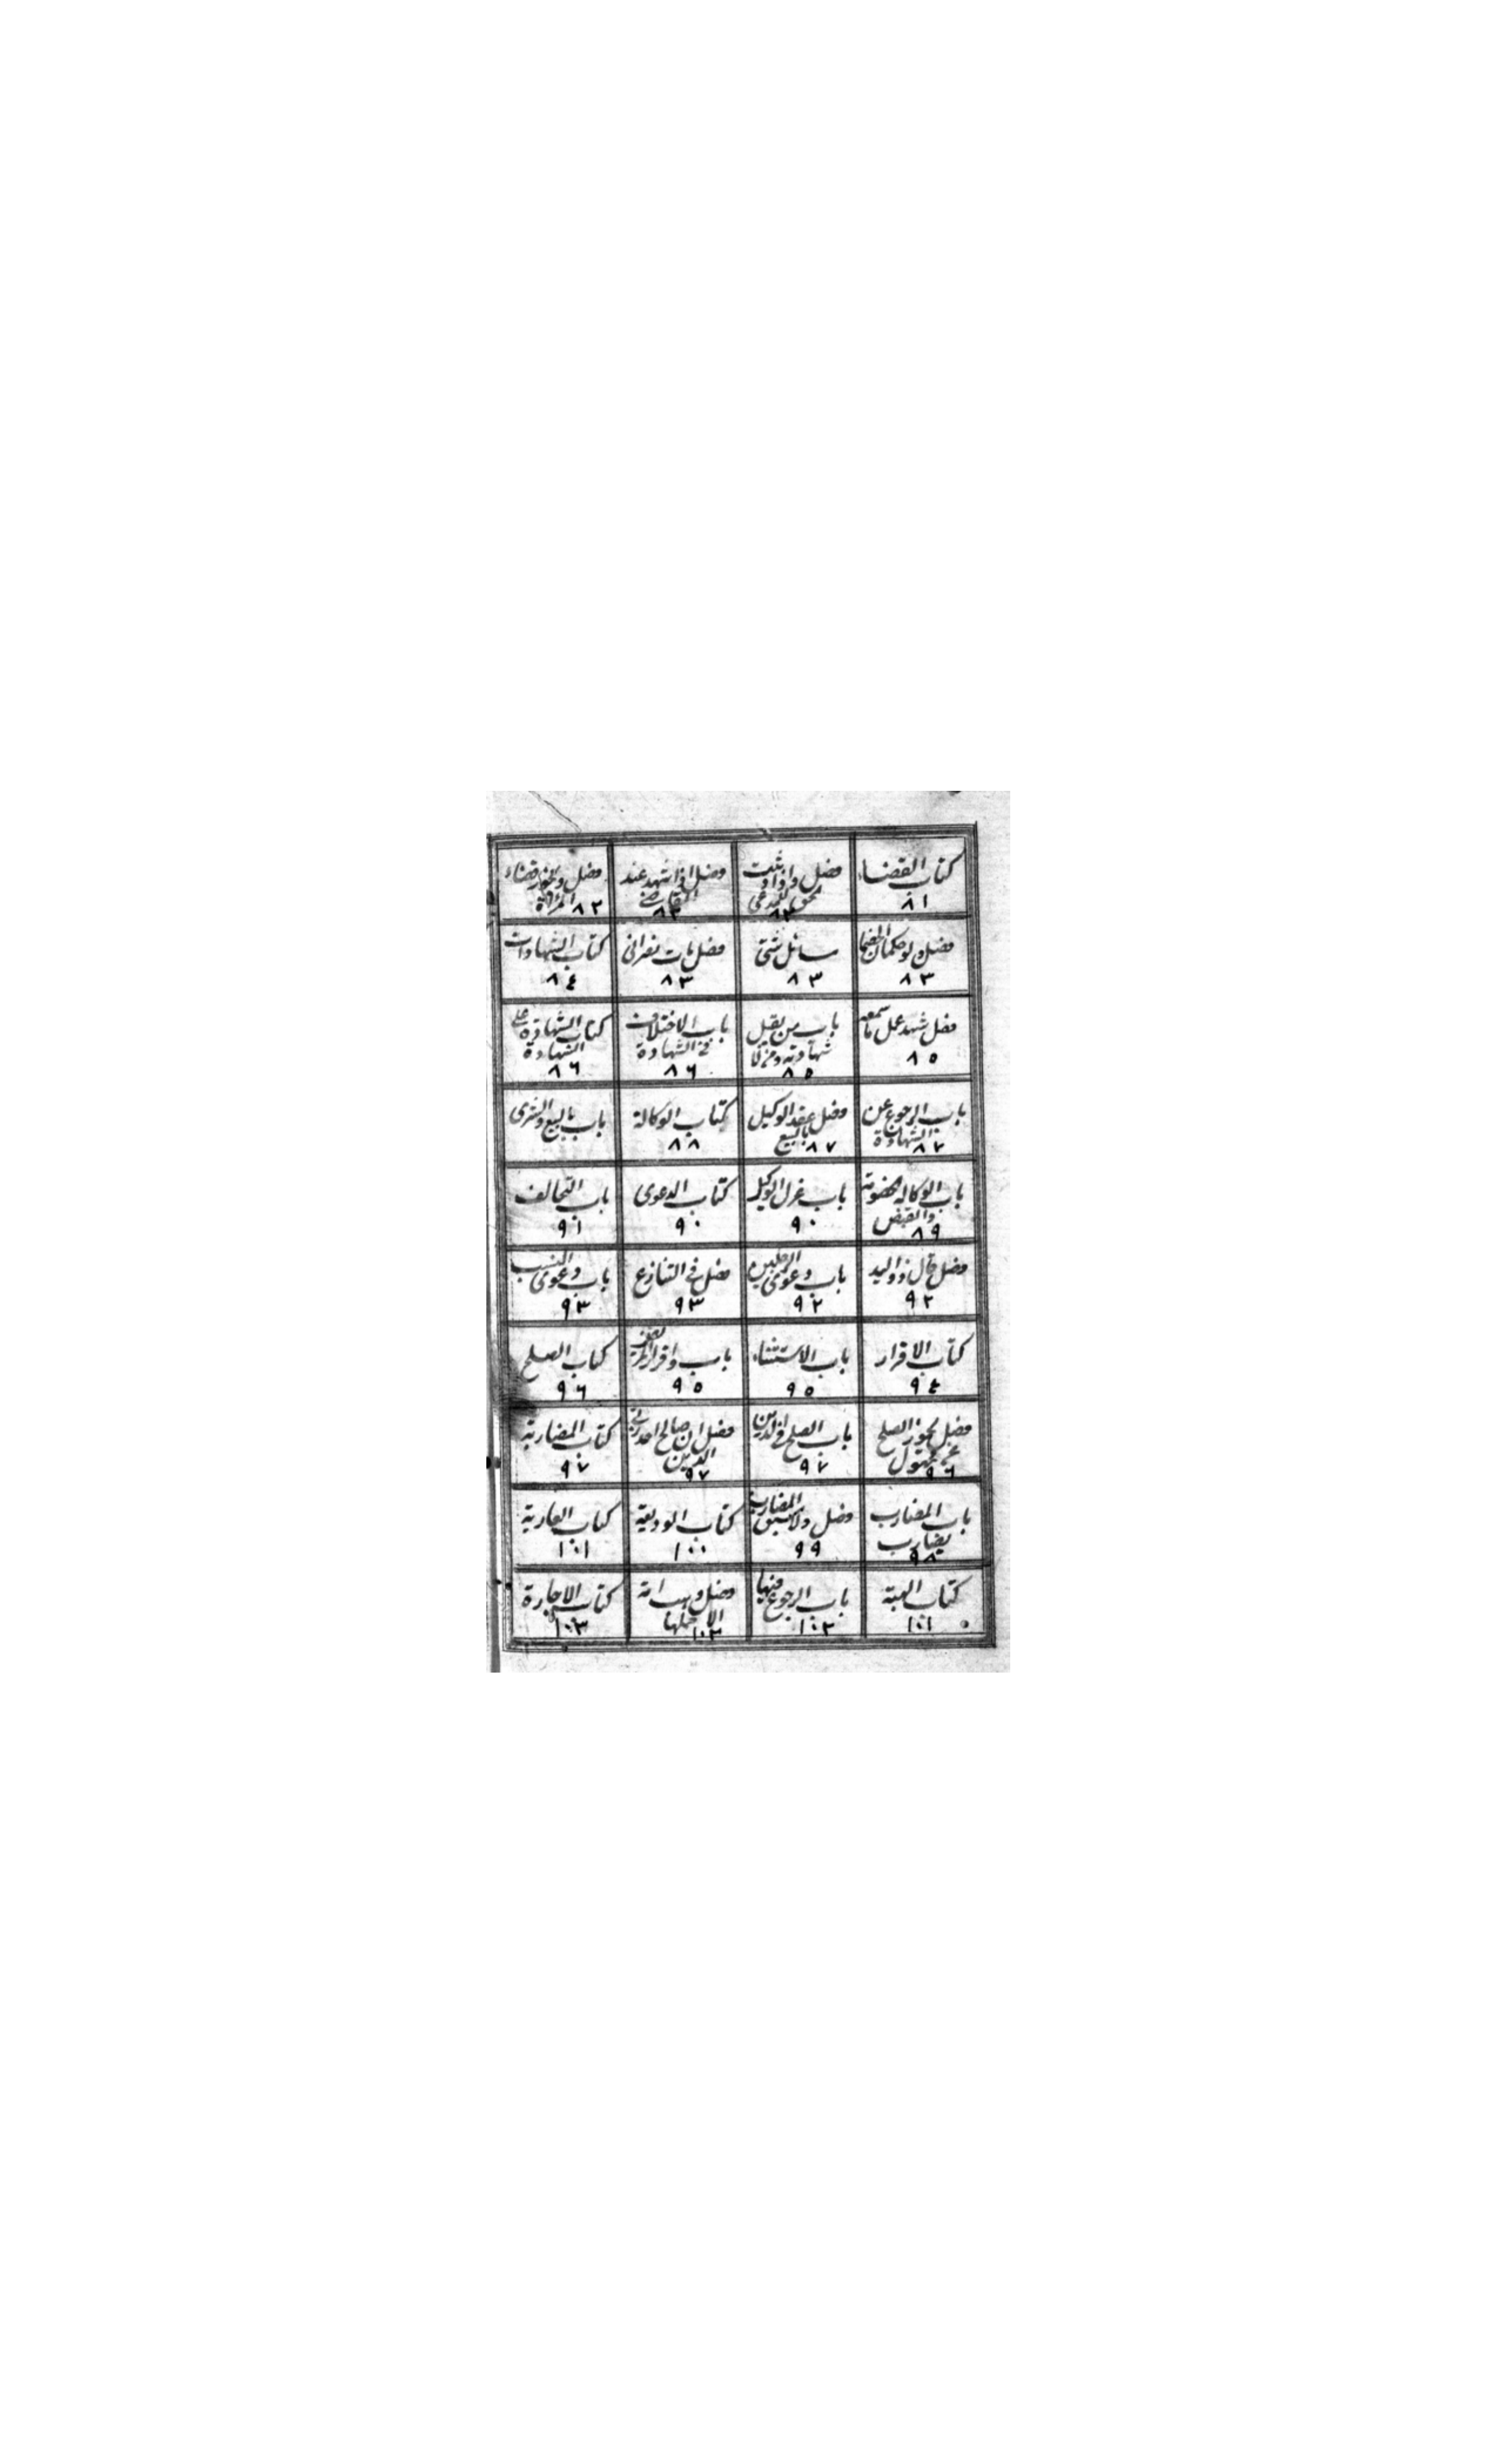 كتاب القضاء
٨١
فصل واذا ثبت
للمدعى
٨٢
فصل اذا شهد عند
القاضى
٨٢
فصل ويجوز قضاء
المرأة ٨٢
فصل ولو حكما
٨٣
مسائل شتى
٨٣
فصل مات نصرانى
٨٣
كتاب الشهادات
٨٤
فصل شهد بكل ما سمعه
٨٥
باب من يقبل
شهادته ومن لا
٨٥
باب الاختلاف
فى الشهادة
٨٦
كتاب الشهادة على
الشهادة
٨٦
باب الرجوع عن
الشهادة
٨٧
فصل عقد الوكيل
بالبيع
٨٧
كتاب الوكالة
٨٨
باب بالبيع والشرى
باب الوكالة بالخصومة
والقبض
٨٩
باب عزل الوكيل
٩٠
كتاب الدعوى
٩٠
باب التحالف
٩١
فصل قال ذو اليد
٩٢
باب دعوى الرجلين
٩٢
فصل فى التنازع
٩٣
باب دعوى النسب
٩٣
كتاب الاقرار
٩٤
باب الاستثناء
٩٥
باب واقرار المريض
٩٥
كتاب الصلح
٩٦
فصل يجوز الصلح
عن مجهول
٩٦
باب الصلح فى الدين
٩٧
فصل ان صالح احد ربى
الدين
٩٧
كتاب المضاربة
٩٧
باب المضارب
يضارب
٩٨
فصل ولا
المضارب
٩٩
كتاب الوديعة
١٠٠
كتاب العارية
١٠١
كتاب الهبة
١٠١
باب الرجوع فيها
١٠٢
فصل وهب امة
الا حملها
١٠٣
كتاب الاجارة
١٠٣